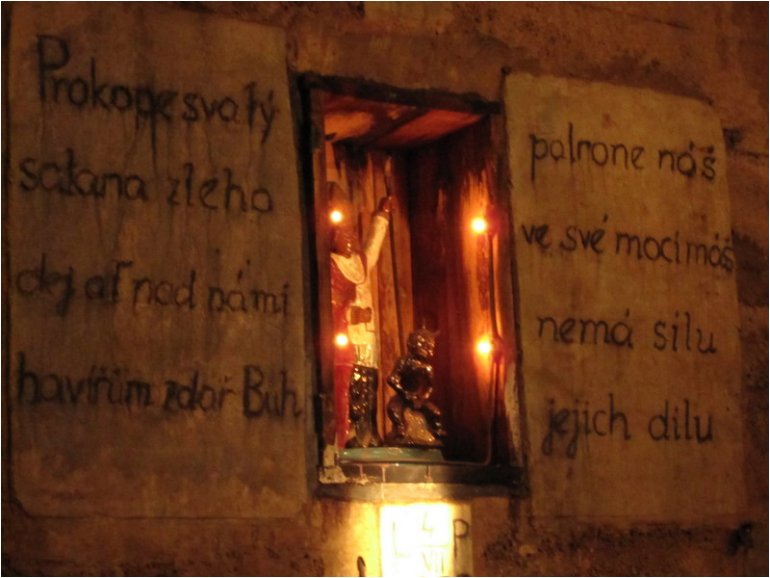 Prokope svatý patrone náš
satana zlého ve své moci máš
dej ať nad námi nemá sílu
havířům zdař Bůh jejich dílu
L 4 P
VII